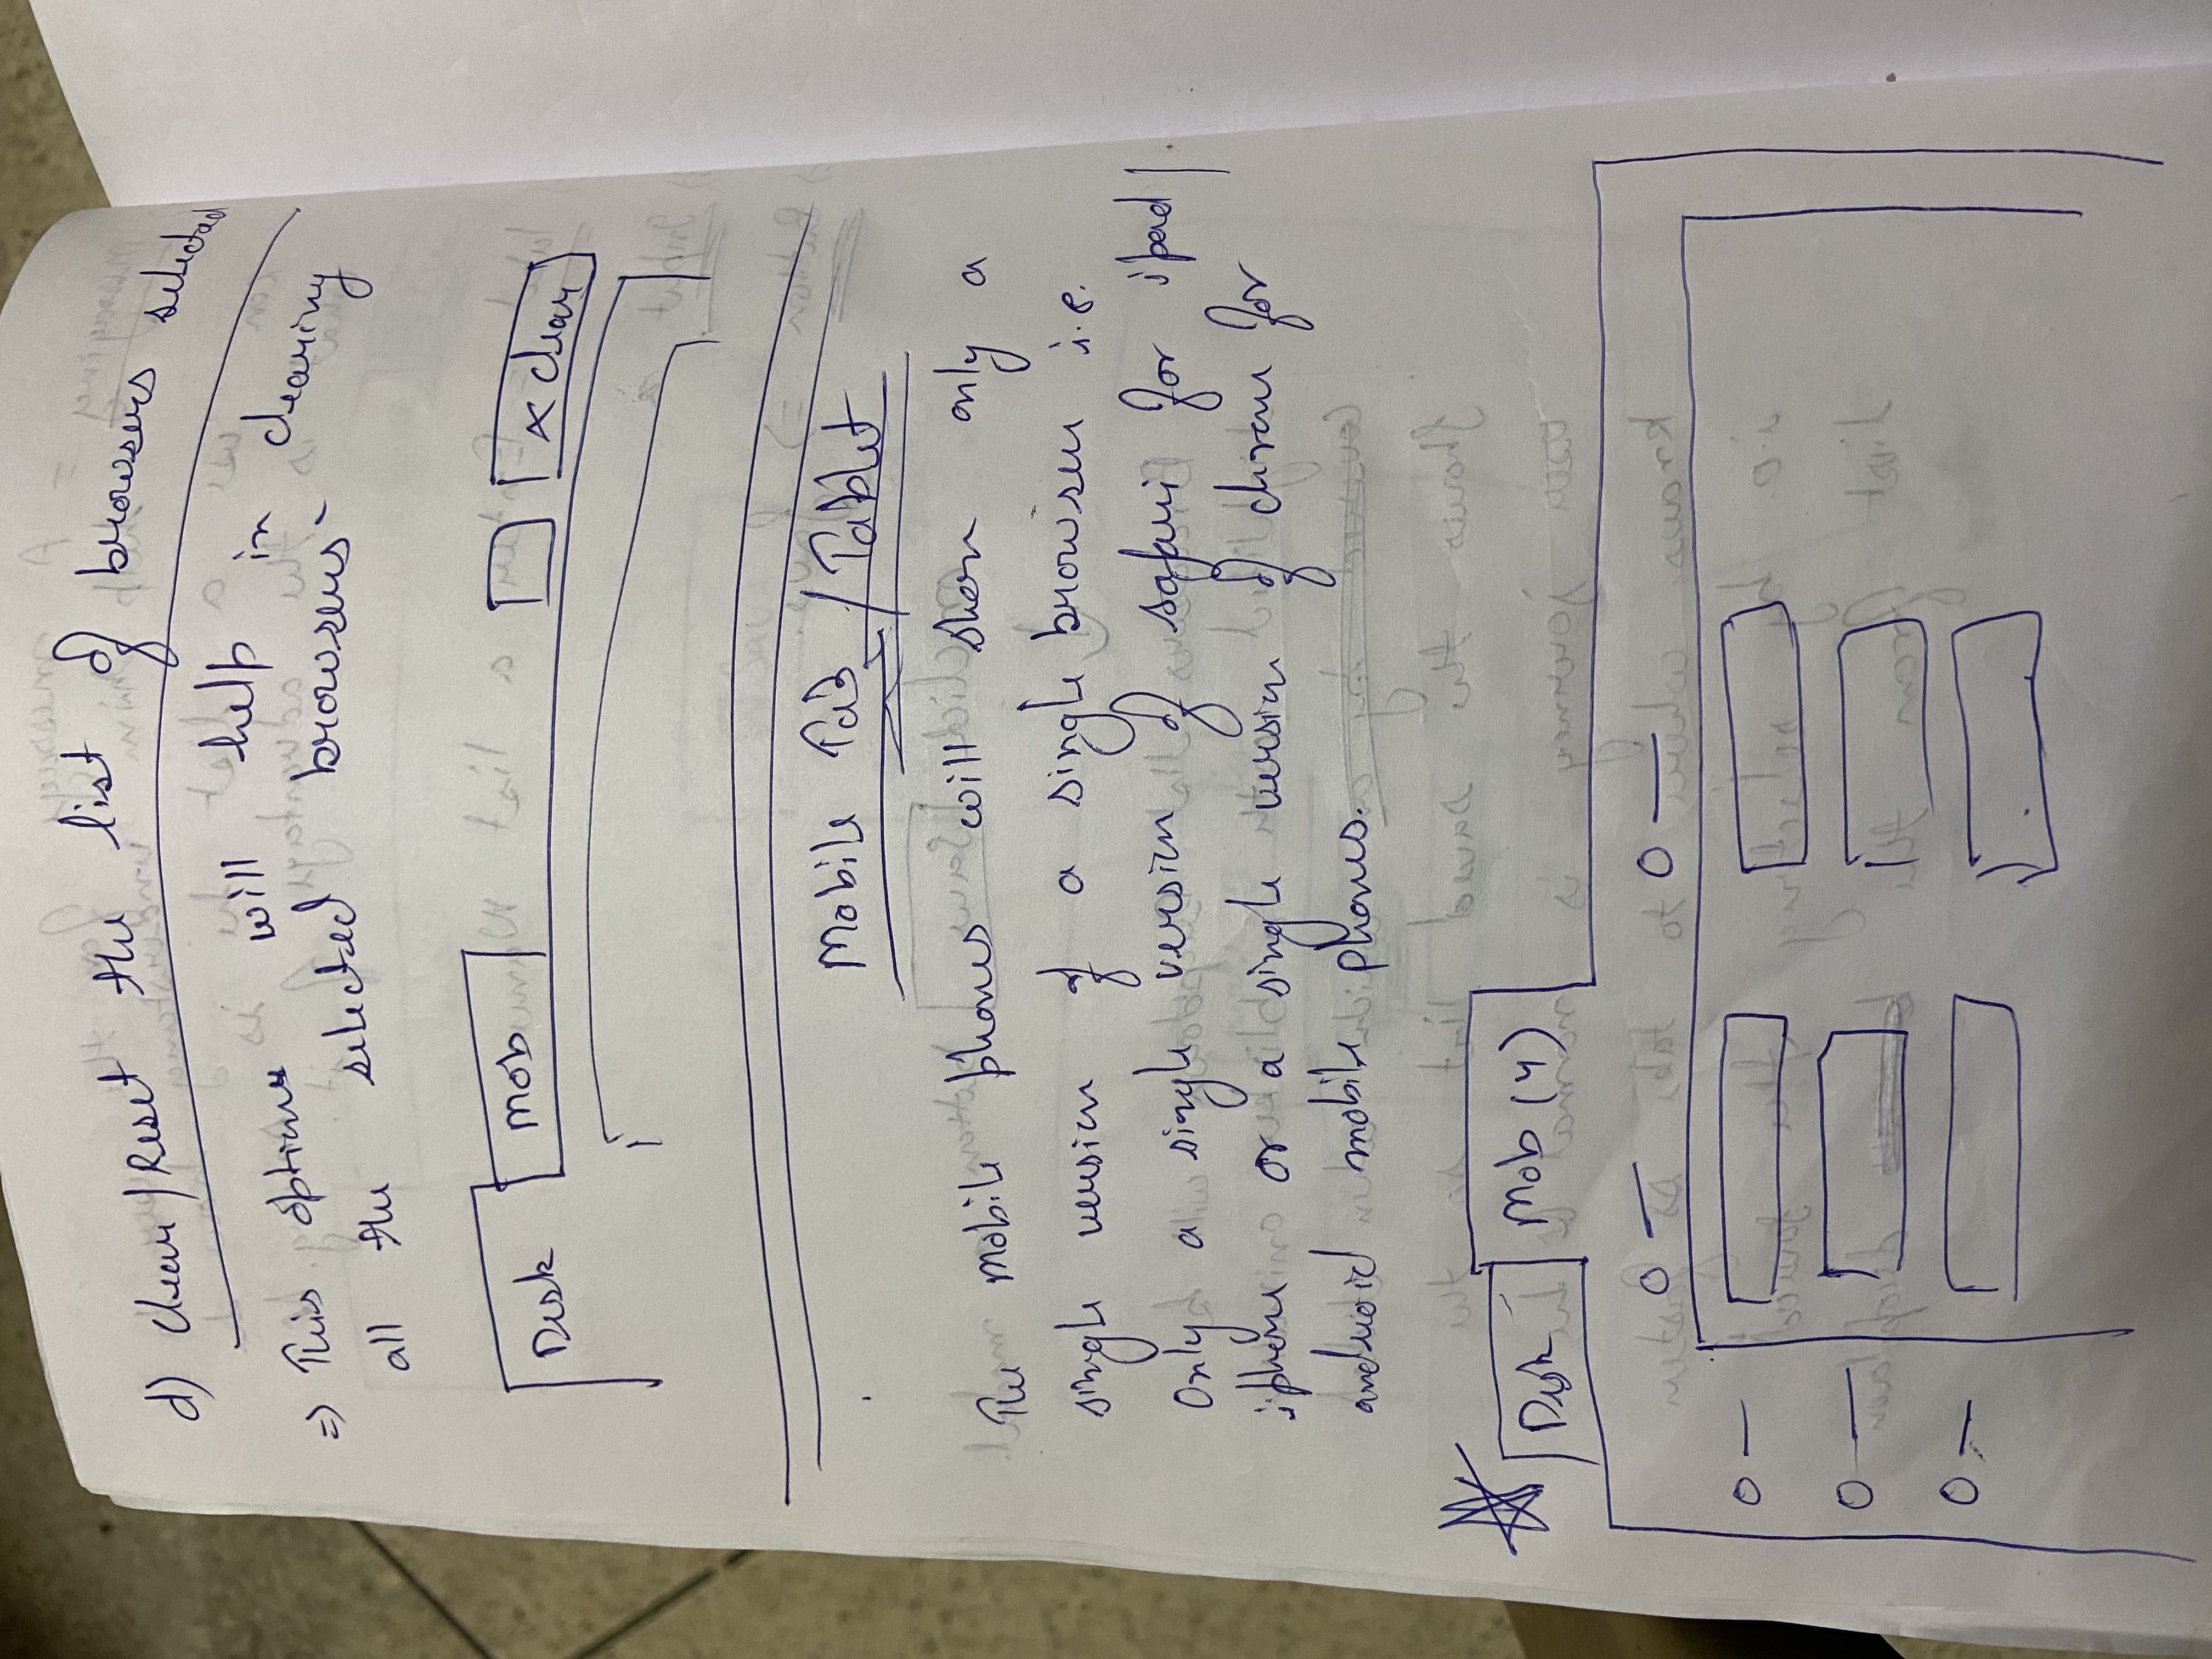 d) Clear/Reset the list of browsers selected
=> This option will help in clearing
all the selected browsers-
Desk Mob x Clear
Mobile Tab / Tablet
The mobile phones will show only a
single version of a single browser i.e.
Only a single version of safari for ipad/
iphone or a single version of chrome for
android mobile phones.
Desk Mob (4)